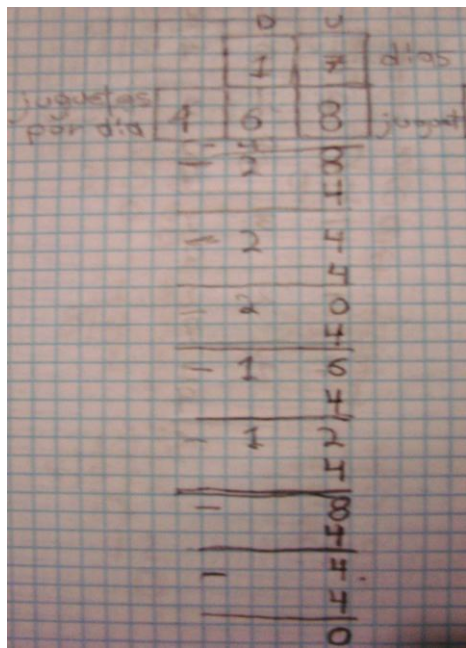 D U
1 7 dias
juguetes
por dia 4 6 8 jugut
- 4
2 8
4
- 2 4
4
- 2 0
4
- 1 6
4
- 1 2
4
- 8
4
- 4
4
0